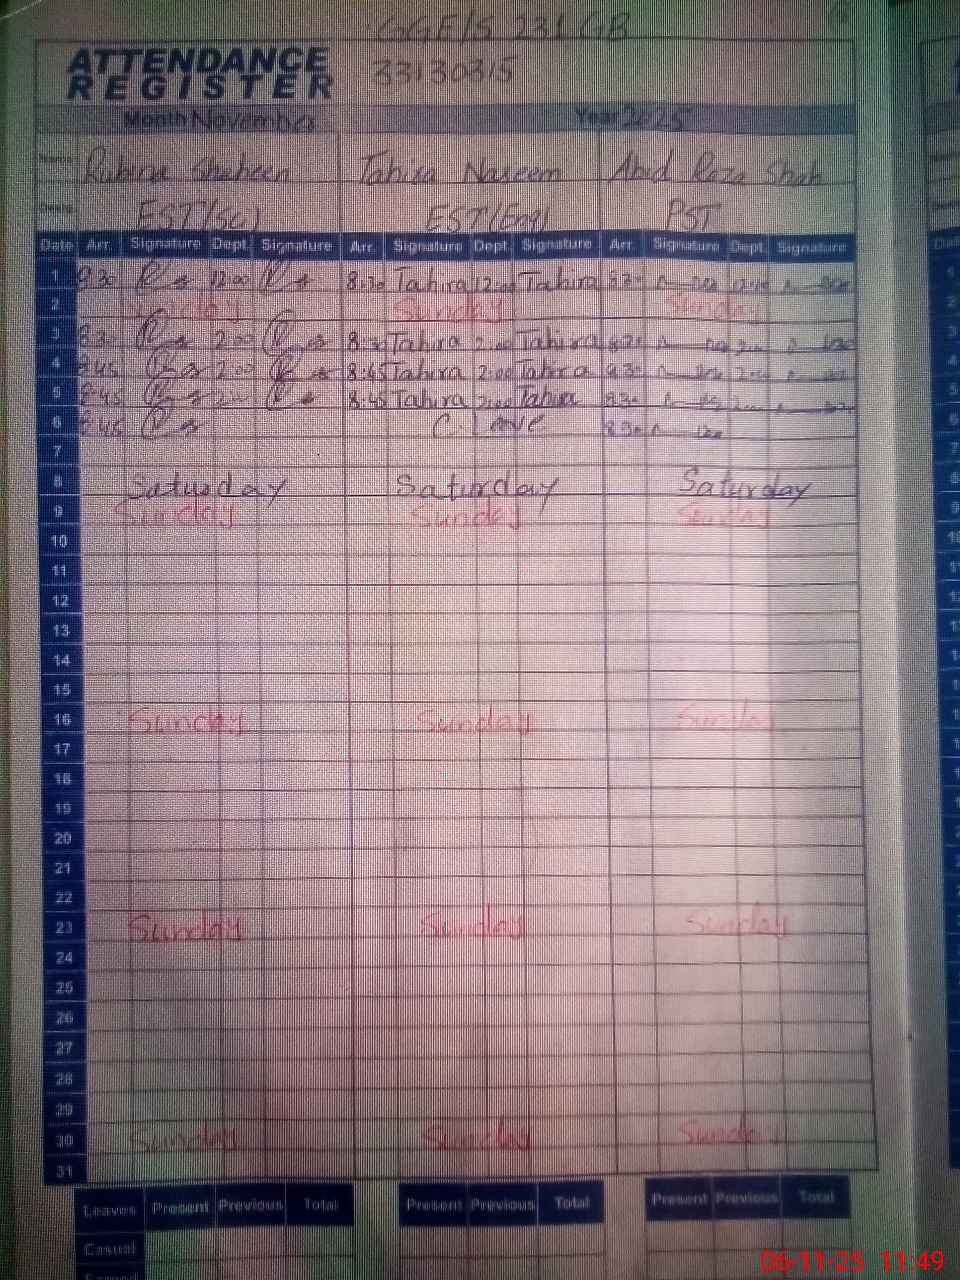 GGE/S 231 GB
ATTENDANCE 33130315
REGISTER
Month November Year 2025
Name Rubina Shaheen Tahira Naseem Abid Raza Shah
Desig. EST(Sc) EST(Eng) PST
Date Arr. Signature Dept. Signature Arr. Signature Dept. Signature Arr. Signature Dept. Signature
1 8.30 12.00 8.30 Tahira 12.00 Tahira 830
2 Sunday Sunday Sunday
3 830 2.00 8.30 Tahira 2.00 Tahira
4 8.45 2.00 8.45 Tahira 2.00 Tahira 830
5 8.45 8.45 Tahira 2.00 Tahira 830
6 8.45 C. Leave 830
7
8 Saturday Saturday Saturday
9 Sunday Sunday Sunday
10
11
12
13
14
15
16 Sunday Sunday Sunday
17
18
19
20
21
22
23 Sunday Sunday Sunday
24
25
26
27
28
29
30 Sunday Sunday Sunday
31
Leaves Present Previous Total Present Previous Total Present Previous Total
Casual
06-11-25 11:49